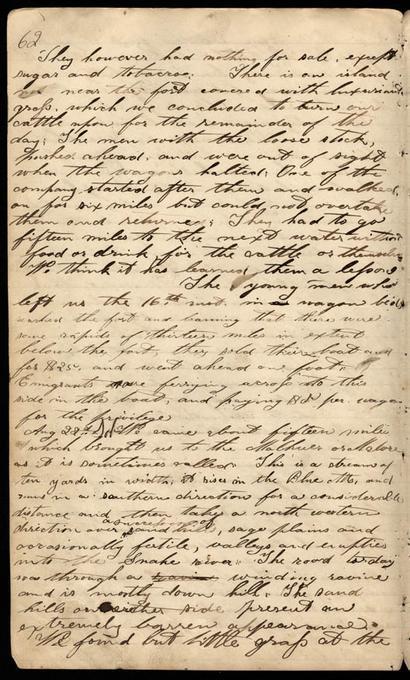 62
They however had nothing for sale, except
sugar and tobacco: There is an island
near the fort covered with luxuriant
grass, which we concluded to turn our
cattle upon for the remainder of the
day; The men with the loose stock,
pushed ahead, and were out of sight
when the wagons halted; One of the
company started after them and walked
on for six miles but could not overtake
them and returned; They had to go
fifteen miles to the next water without
food or drink for the cattle or themselves
We think it has learned them a lesson
The young men who
left us the 16th inst. in a wagon bed
reached the fort and learning that there were
some rapids of thirteen miles in extent
below the fort, they sold their boat and
for and went ahead on foot.
Emigrants are ferrying across to this
side in the boat, and paying per wagon
for the privilege
Aug 28th We came about fifteen miles
which brought us to the Malheur or Malore
as it is sometimes called This is a stream of
ten yards in width, it rises in the Blue Mts, and
runs in a southern direction for a considerable
distance and then takes a north western
direction over sand hills, sage plains and
occasionally fertile valleys and empties
into the Snake River: The road to day
was through a winding ravine
and is mostly down hill: The sand
hills on either side present an
extremely barren appearance
We found but little grass at the